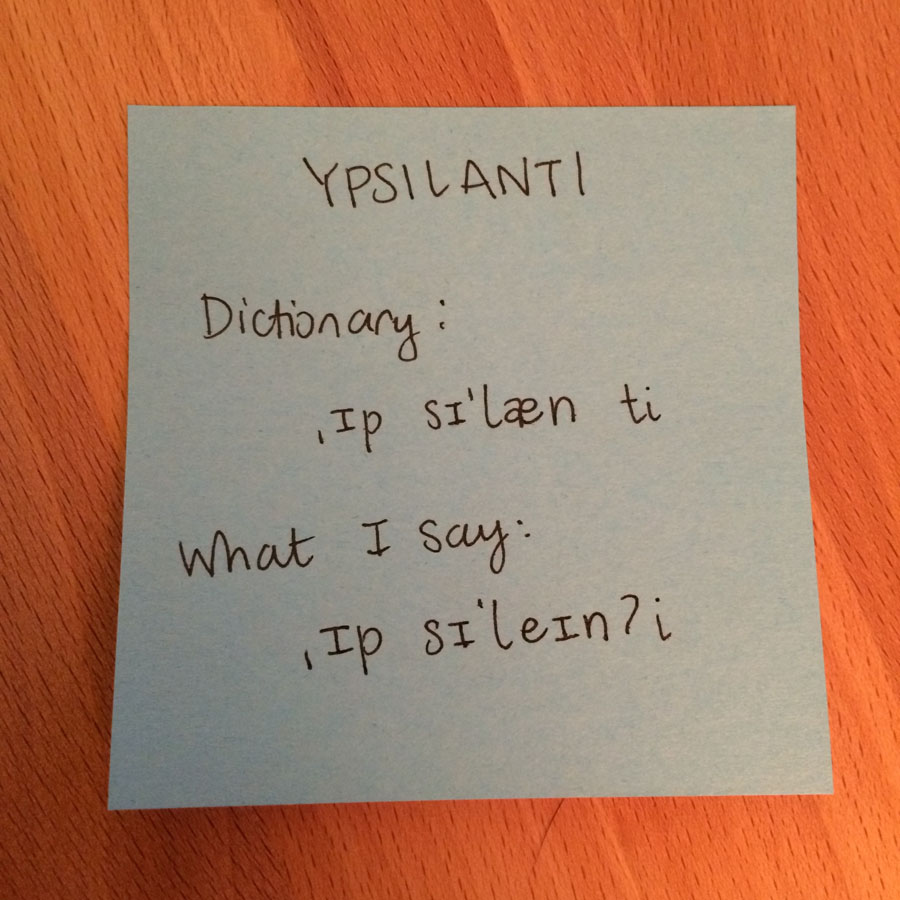 YPSILANTI
Dictionary:
ˌɪp sɪˈlæn ti
What I say:
ˌɪp sɪˈleɪnʔi